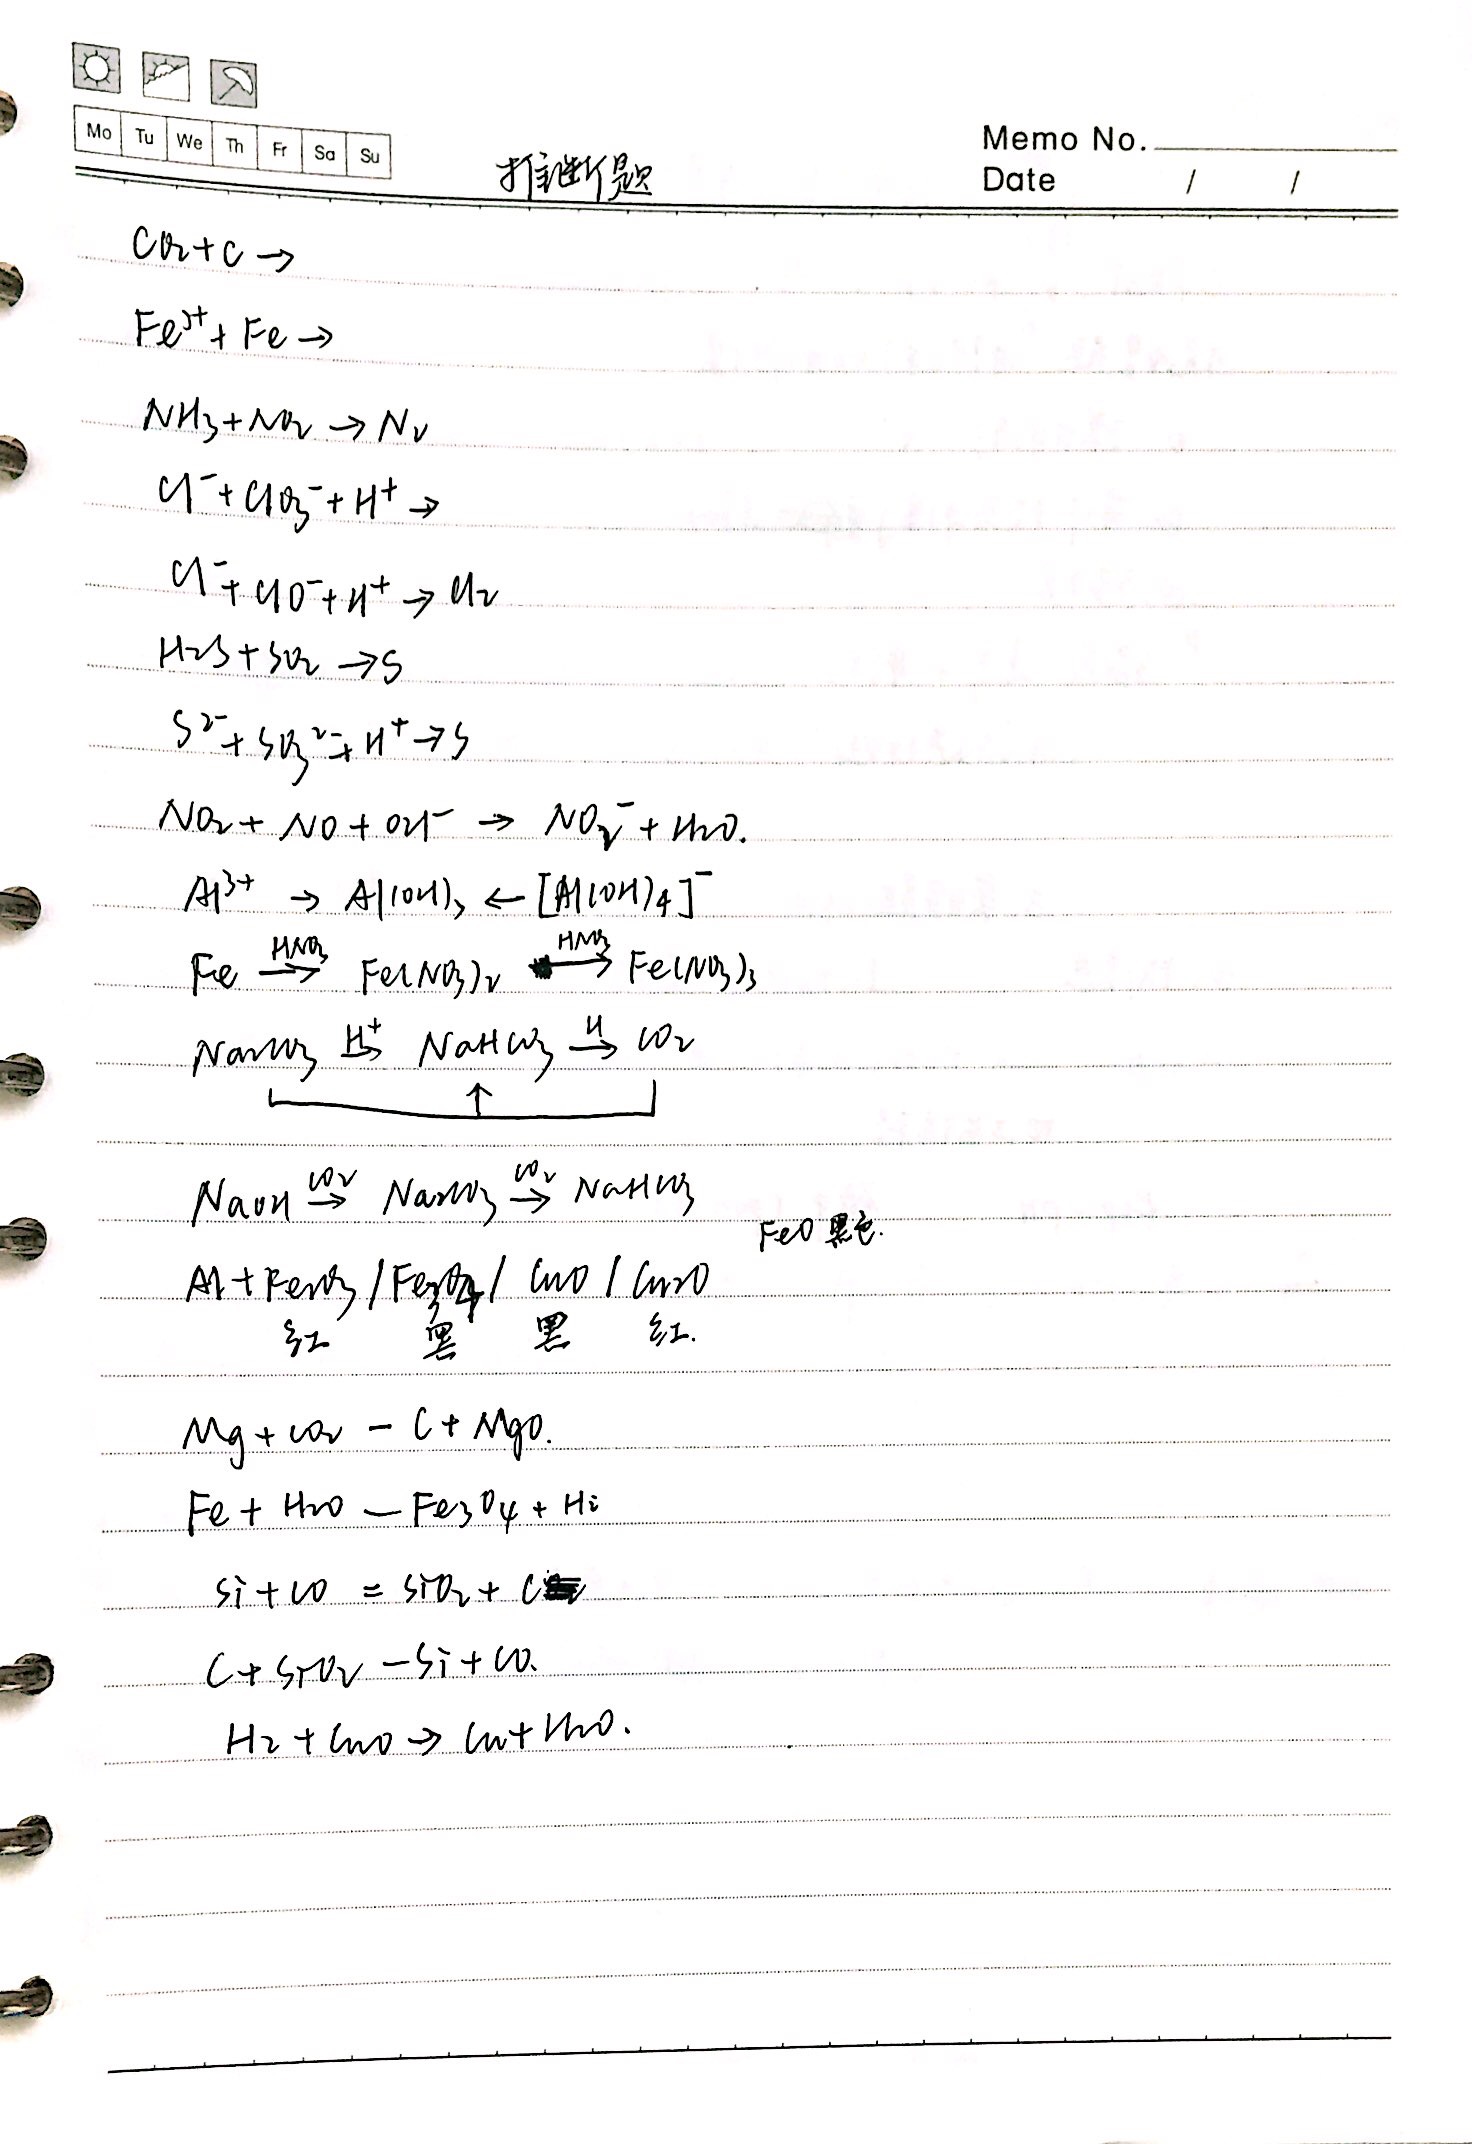 Mo Tu We Th Fr Sa Su
推断题
Memo No.
Date / /
CO₂+C→
Fe³⁺+Fe→
NH₃+NO₂→N₂
Cl⁻+ClO₃⁻+H⁺→
Cl⁻+ClO⁻+H⁺→Cl₂
H₂S+SO₂→S
S²⁻+SO₃²⁻+H⁺→S
NO₂+NO+OH⁻→NO₂⁻+H₂O.
Al³⁺→Al(OH)₃←[Al(OH)₄]⁻
HNO₃ HNO₃
Fe→Fe(NO₃)₂→Fe(NO₃)₃
H⁺ H
Na₂CO₃→NaHCO₃→CO₂
↑
CO₂ CO₂
NaOH→Na₂CO₃→NaHCO₃
FeO 黑色.
Al+Fe₂O₃/Fe₃O₄/CuO/Cu₂O
红 黑 黑 红.
Mg+CO₂–C+MgO.
Fe+H₂O–Fe₃O₄+H₂
Si+CO=SiO₂+C
C+SiO₂–Si+CO.
H₂+CuO→Cu+H₂O.